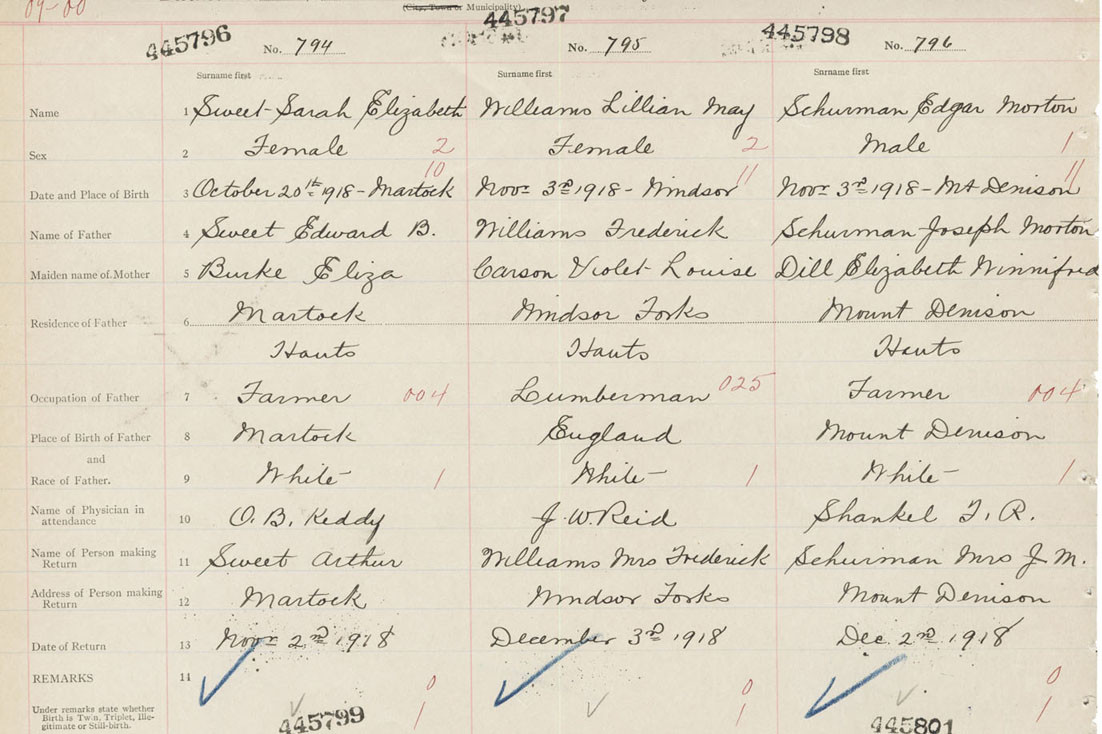 09-00
(City, Town or Municipality)
445796 445797 445798
No. 794 No. 795 No. 796
Surname first Surname first Surname first
Name 1 Sweet Sarah Elizabeth Williams Lillian May Schurman Edgar Morton
Sex 2 Female 2 Female 2 Male 1
10 11 11
Date and Place of Birth 3 October 20th 1918 - Martock Novr 3rd 1918 - Windsor Novr 3rd 1918 - Mt Denison
Name of Father 4 Sweet Edward B. Williams Frederick Schurman Joseph Morton
Maiden name of Mother 5 Burke Eliza Carson Violet Louise Dill Elizabeth Winnifred
Residence of Father 6 Martock Windsor Forks Mount Denison
Hants Hants Hants
Occupation of Father 7 Farmer 004 Lumberman 025 Farmer 004
Place of Birth of Father 8 Martock England Mount Denison
and
Race of Father. 9 White 1 White 1 White 1
Name of Physician in
attendance 10 O. B. Keddy J. W. Reid Shankel F. R.
Name of Person making
Return 11 Sweet Arthur Williams Mrs Frederick Schurman Mrs J. M.
Address of Person making
Return 12 Martock Windsor Forks Mount Denison
Date of Return 13 Novr 2nd 1918 December 3rd 1918 Dec. 2nd 1918
REMARKS 14 0 0 0
Under remarks state whether
Birth is Twin, Triplet, Ille-
gitimate or Still-birth. 1 1 1
445799 445801